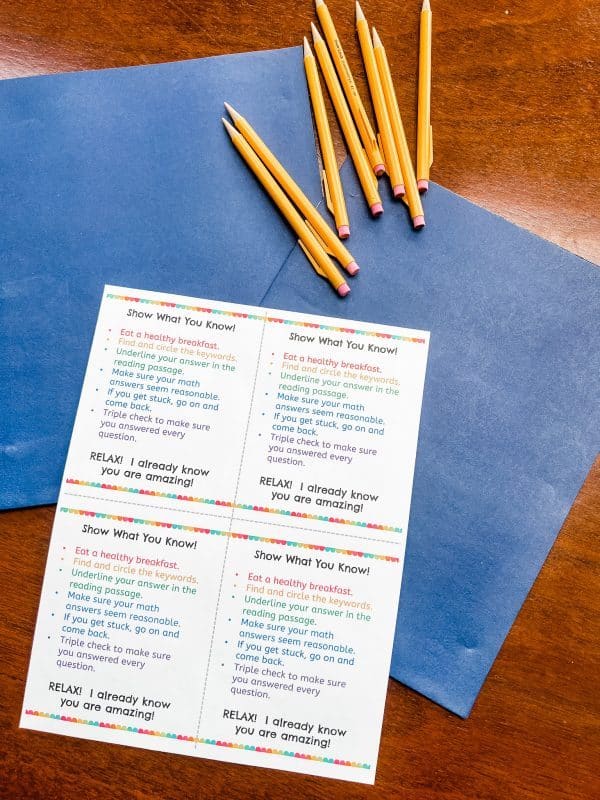 Show What You Know!
• Eat a healthy breakfast.
• Find and circle the keywords.
• Underline your answer in the
reading passage.
• Make sure your math
answers seem reasonable.
• If you get stuck, go on and
come back.
• Triple check to make sure
you answered every
question.
RELAX! I already know
you are amazing!
Show What You Know!
• Eat a healthy breakfast.
• Find and circle the keywords.
• Underline your answer in the
reading passage.
• Make sure your math
answers seem reasonable.
• If you get stuck, go on and
come back.
• Triple check to make sure
you answered every
question.
RELAX! I already know
you are amazing!
Show What You Know!
• Eat a healthy breakfast.
• Find and circle the keywords.
• Underline your answer in the
reading passage.
• Make sure your math
answers seem reasonable.
• If you get stuck, go on and
come back.
• Triple check to make sure
you answered every
question.
RELAX! I already know
you are amazing!
Show What You Know!
• Eat a healthy breakfast.
• Find and circle the keywords.
• Underline your answer in the
reading passage.
• Make sure your math
answers seem reasonable.
• If you get stuck, go on and
come back.
• Triple check to make sure
you answered every
question.
RELAX! I already know
you are amazing!